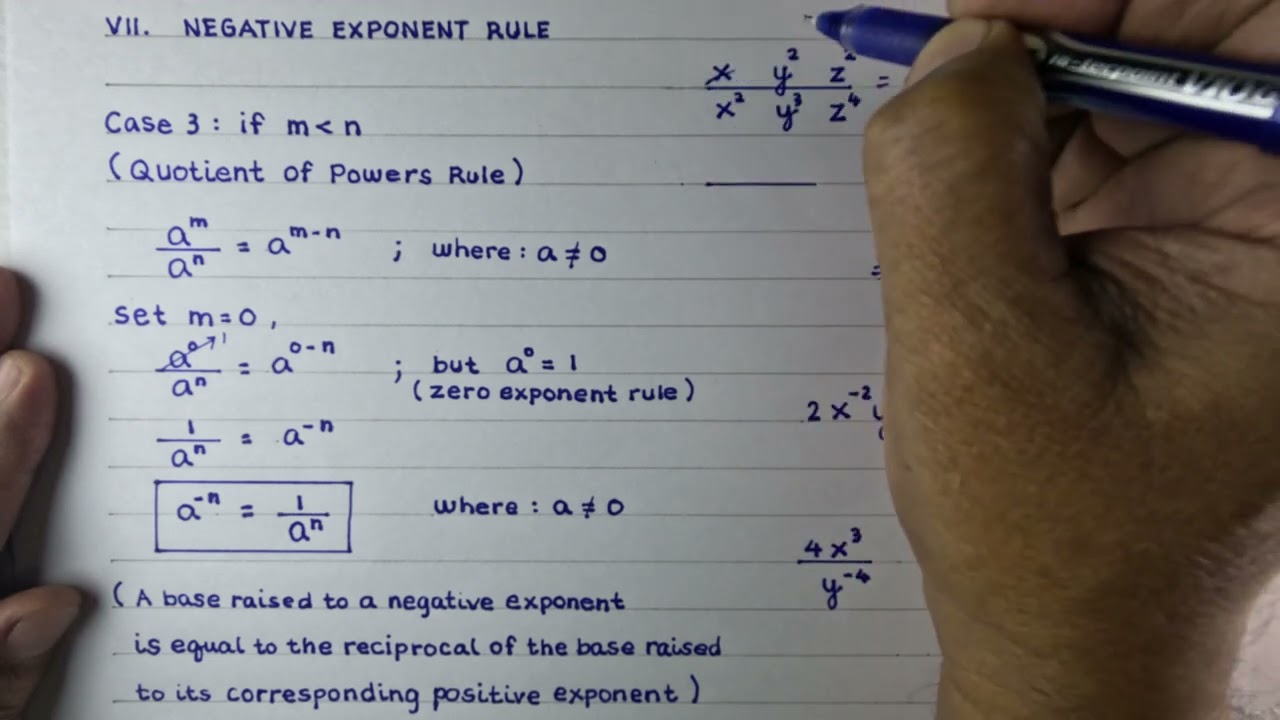 VII. NEGATIVE EXPONENT RULE
Case 3 : if m < n
(Quotient of Powers Rule)
a^m / a^n = a^(m-n) ; where : a ≠ 0
set m = 0 ,
a^0 → 1 / a^n = a^(0-n) ; but a^0 = 1
(zero exponent rule)
1 / a^n = a^(-n)
a^(-n) = 1 / a^n where : a ≠ 0
( A base raised to a negative exponent
is equal to the reciprocal of the base raised
to its corresponding positive exponent )
x y^2 z^2 / x^2 y^3 z^4 =
=
2 x^(-2)
4 x^3 / y^(-4)